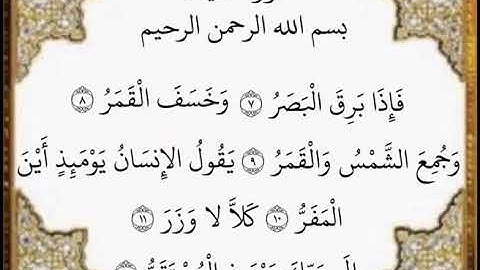 بسم الله الرحمن الرحيم
فَإِذَا بَرِقَ الْبَصَرُ ﴿٧﴾ وَخَسَفَ الْقَمَرُ ﴿٨﴾
وَجُمِعَ الشَّمْسُ وَالْقَمَرُ ﴿٩﴾ يَقُولُ الإِنسَانُ يَوْمَئِذٍ أَيْنَ
الْمَفَرُّ ﴿١٠﴾ كَلاَّ لا وَزَرَ ﴿١١﴾